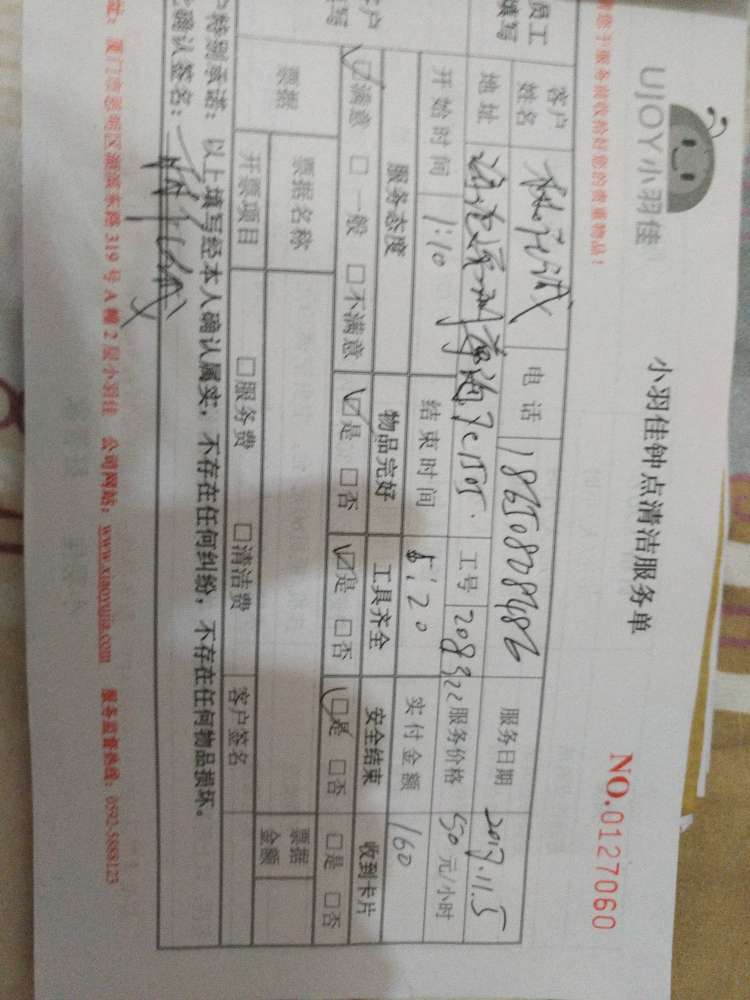 UJOY小羽佳
小羽佳钟点清洁服务单
NO.0127060
您于服务前收拾好您的贵重物品！
员工填写
客户姓名 电话 18650808486 服务日期 2017.11.5
地址 工号 208322 服务价格 50元/小时
开始时间 1:10 结束时间 5:20 实付金额 160
客户填写
服务态度 物品完好 工具齐全 安全结束 收到卡片
☑满意 □一般 □不满意 ☑是 □否 ☑是 □否 ☑是 □否 □是 □否
票据 票据名称 票据金额
开票项目 □服务费 □清洁费 客户签名
户特别承诺：以上填写经本人确认属实，不存在任何纠纷，不存在任何物品损坏。
确认签名：
址：厦门市思明区湖滨东路319号A幢2层小羽佳 公司网站：www.xiaoyujia.com 服务监督热线：0592-5888123